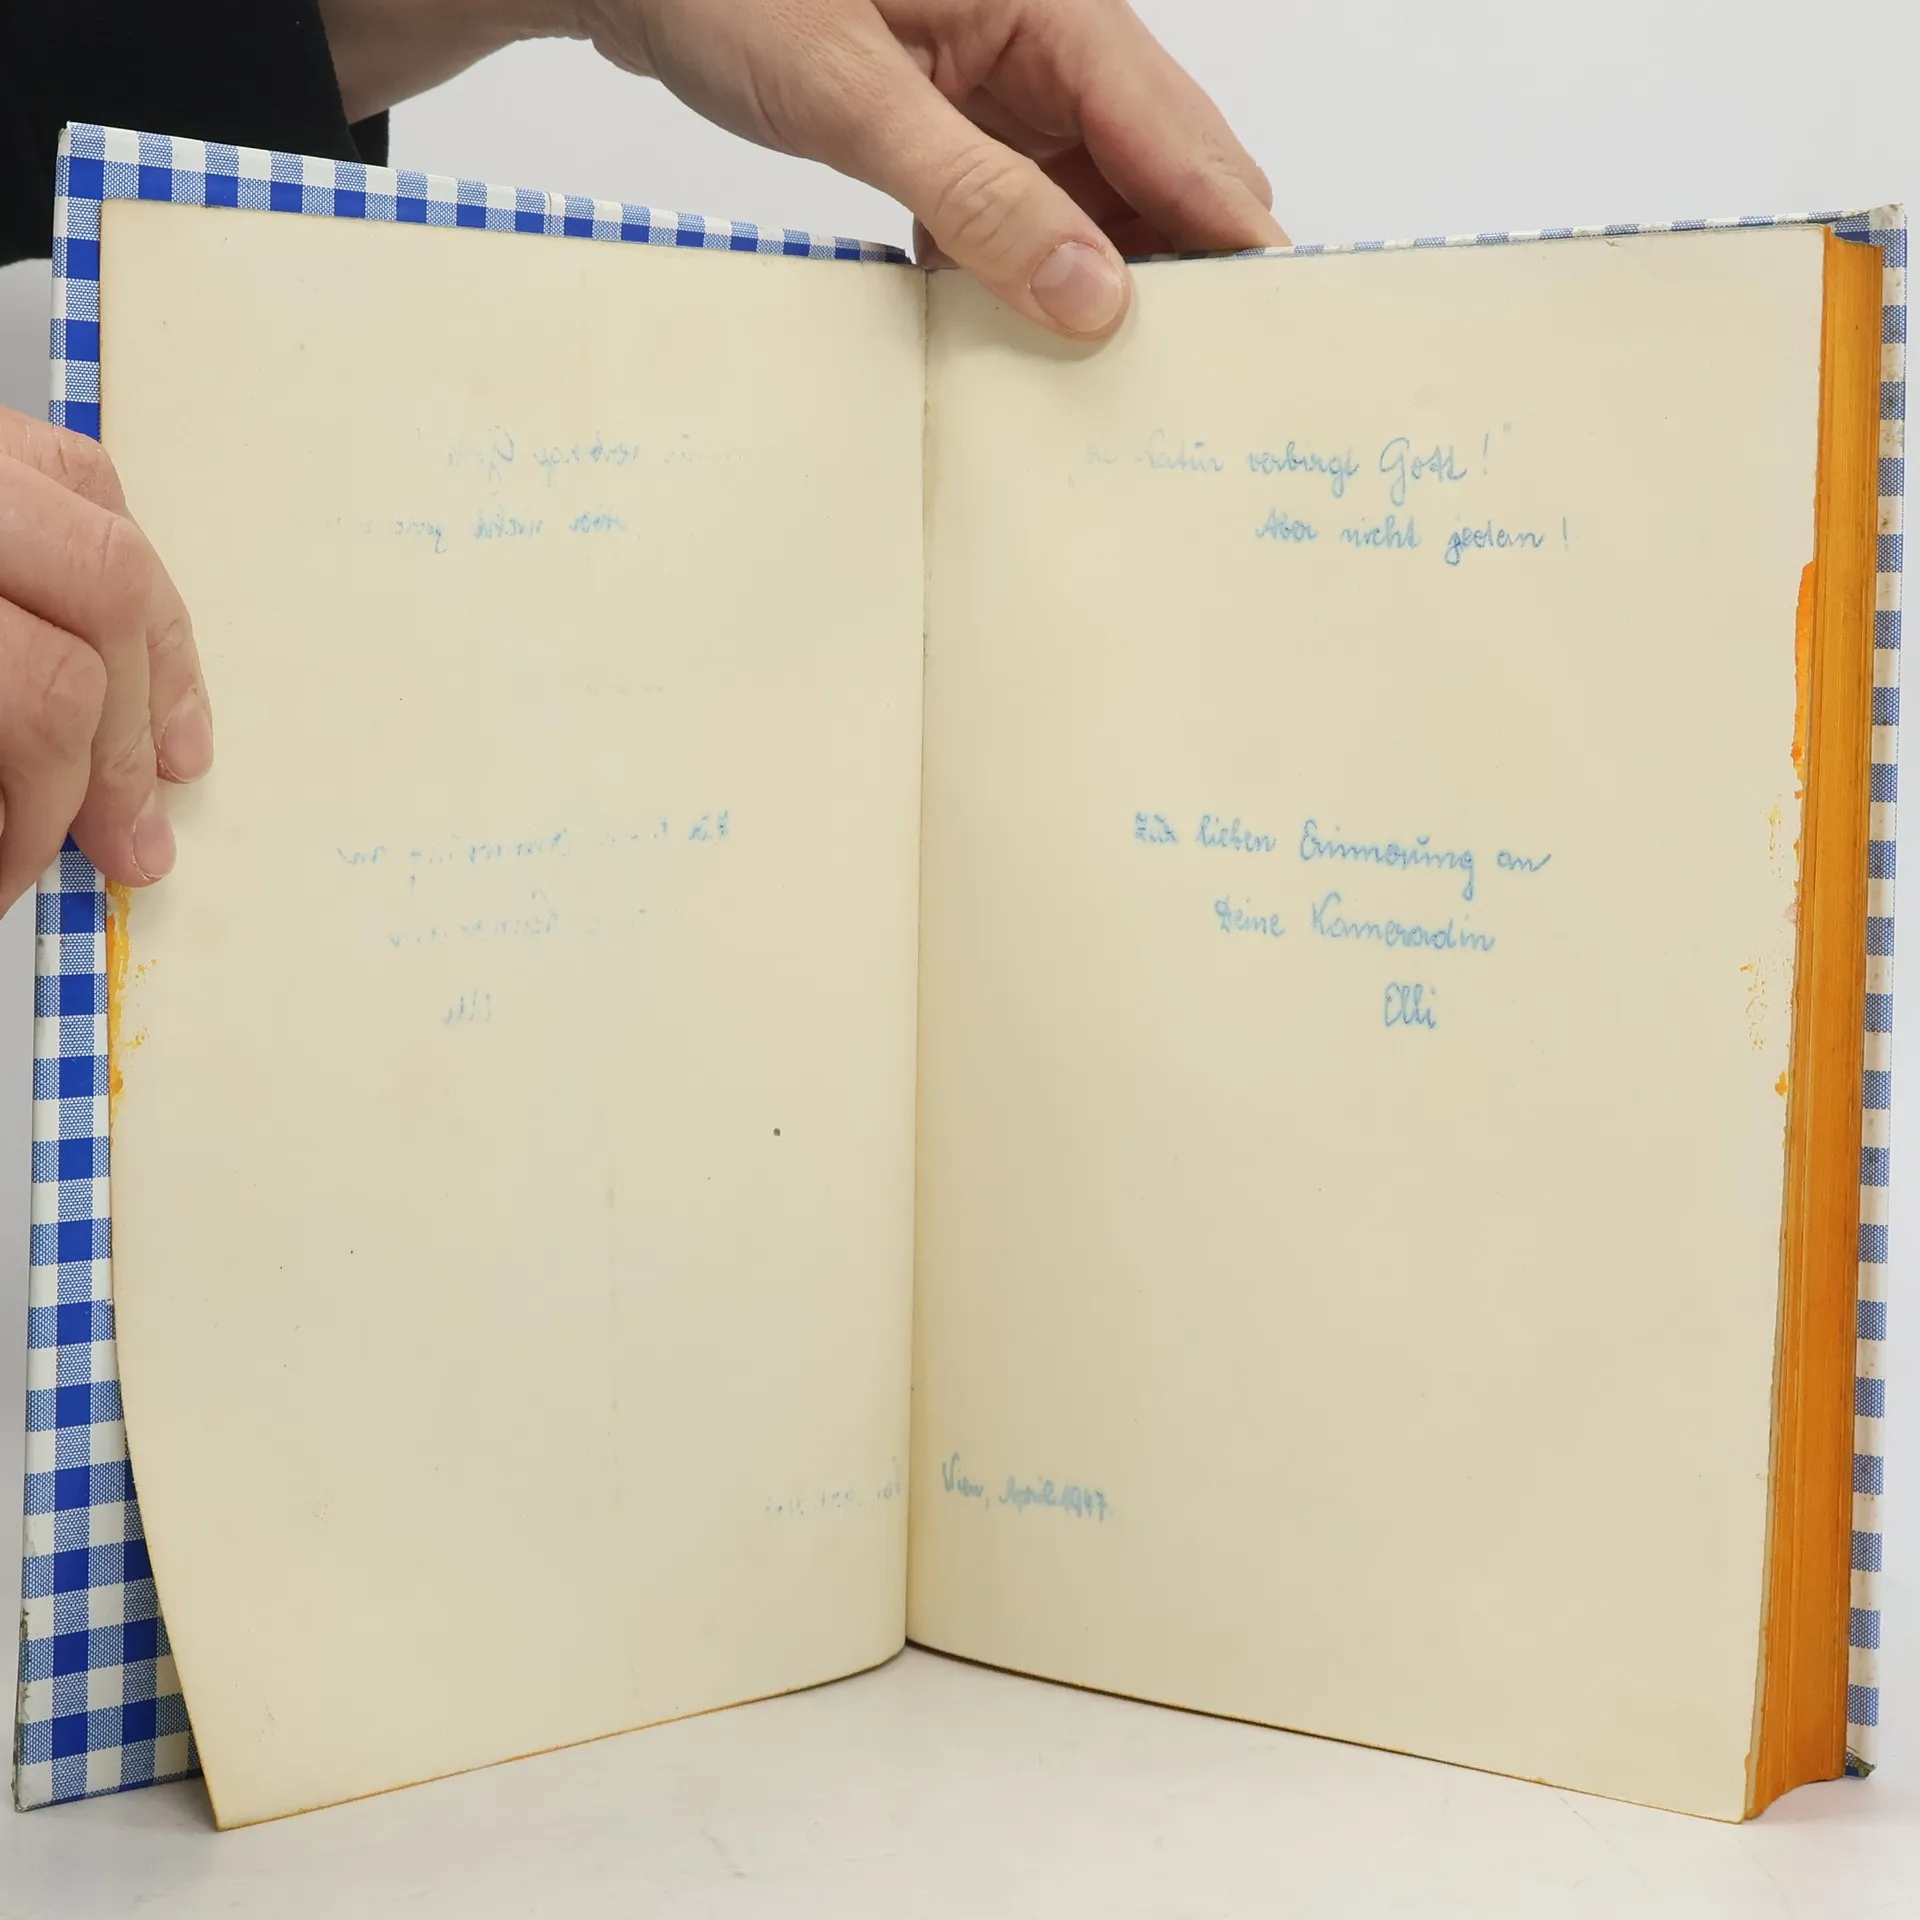 Natur verbirgt Gott!"
Aber nicht jedem!
Zur lieben Erinnerung an
Deine Kameradin
Elli
Wien, April 1947.